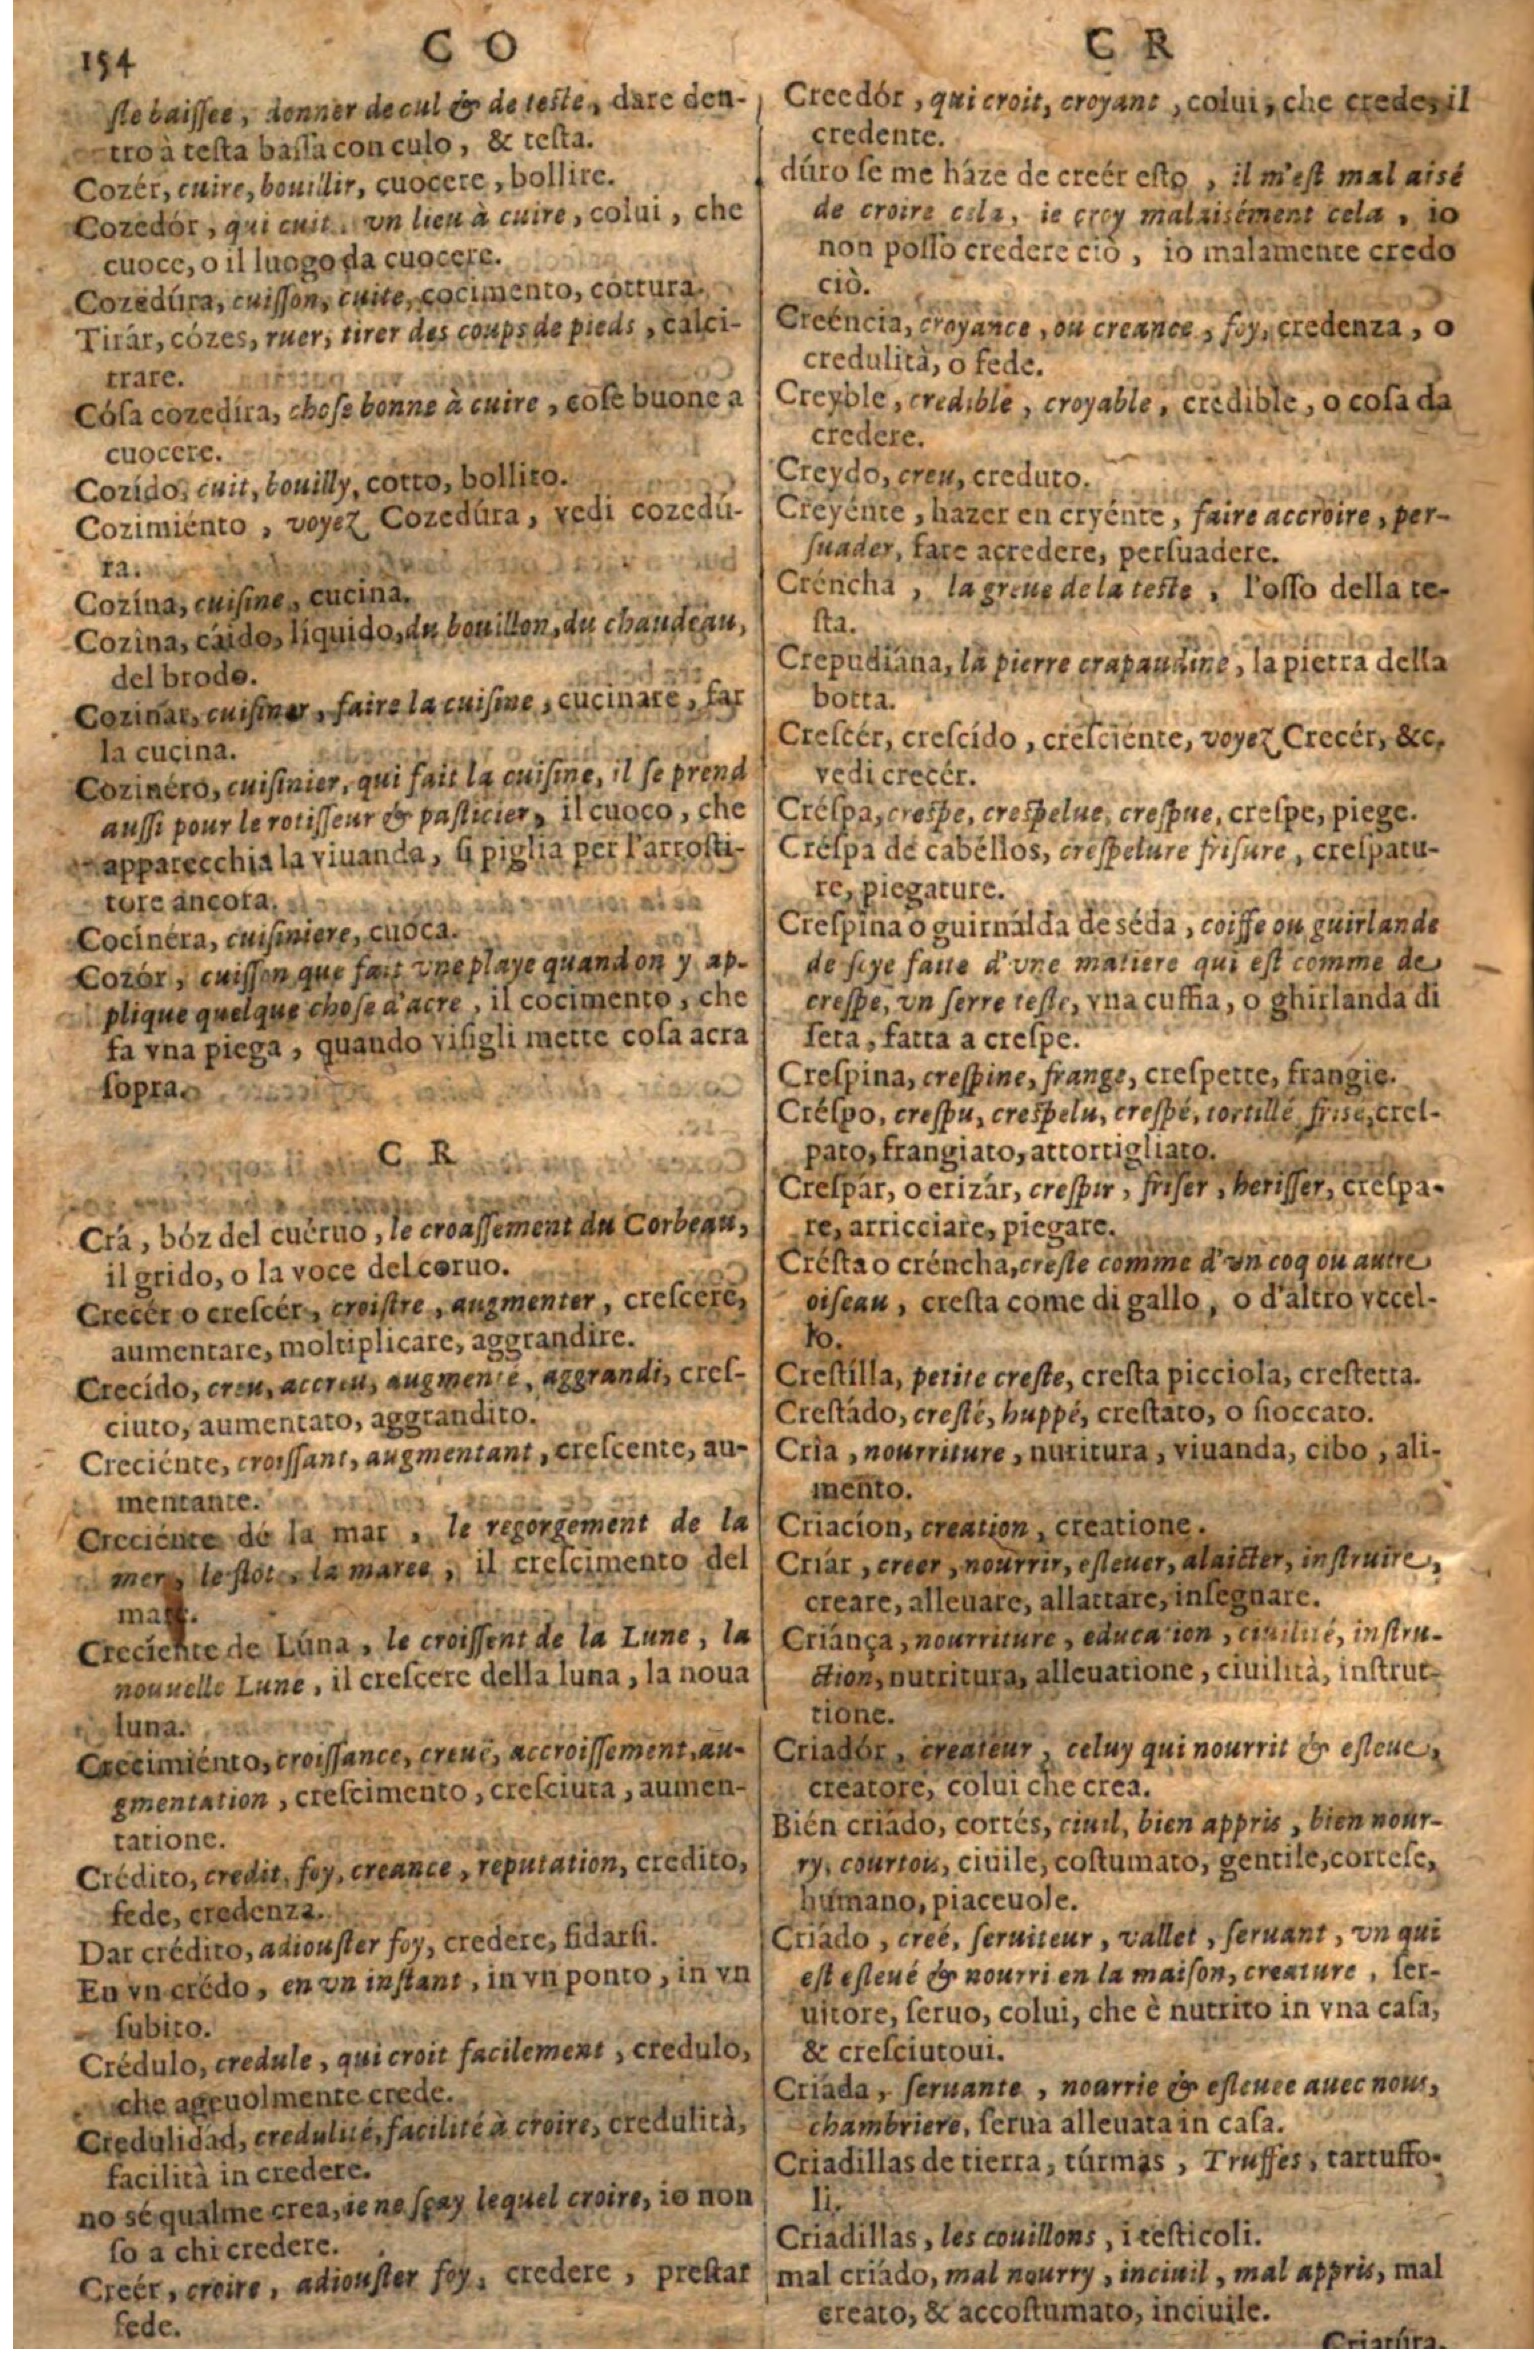 154
C O
C R
ste baissee, donner de cul & de teste, dare den-
tro à testa bassa con culo, & testa.
Cozér, cuire, bouillir, cuocere, bollire.
Cozedór, qui cuit. vn lieu à cuire, colui, che
cuoce, o il luogo da cuocere.
Cozedúra, cuisson, cuite, cocimento, cottura.
Tirár, cózes, ruer, tirer des coups de pieds, calci-
trare.
Cósa cozedíra, chose bonne à cuire, cose buone a
cuocere.
Cozído, cuit, bouilly, cotto, bollito.
Cozimiénto, voyez Cozedúra, vedi cozedú-
ra.
Cozína, cuisine, cucina.
Cozina, cáido, líquido, du bouillon, du chaudeau,
del brodo.
Cozinar, cuisiner, faire la cuisine, cucinare, far
la cucina.
Cozinéro, cuisinier, qui fait la cuisine, il se prend
aussi pour le rotisseur & pasticier, il cuoco, che
apparecchia la viuanda, si piglia per l'arrosti-
tore ancora.
Cocinéra, cuisiniere, cuoca.
Cozór, cuisson que fait vne playe quand on y ap-
plique quelque chose d'acre, il cocimento, che
fa vna piega, quando visigli mette cosa acra
sopra.
C R
Crá, bóz del cuéruo, le croassement du Corbeau,
il grido, o la voce del coruo.
Crecér o crescér, croistre, augmenter, crescere,
aumentare, moltiplicare, aggrandire.
Crecído, creu, accreu, augmenté, aggrandi, cres-
ciuto, aumentato, aggrandito.
Creciénte, croissant, augmentant, crescente, au-
mentante.
Creciénte de la mar, le regorgement de la
mer, le flot, la maree, il crescimento del
mare.
Creciente de Lúna, le croissent de la Lune, la
nouuelle Lune, il crescere della luna, la noua
luna.
Crecimiénto, croissance, creuë, accroissement, au-
gmentation, crescimento, cresciuta, aumen-
tatione.
Crédito, credit, foy, creance, reputation, credito,
fede, credenza.
Dar crédito, adiouster foy, credere, fidarsi.
En vn crédo, en vn instant, in vn ponto, in vn
subito.
Crédulo, credule, qui croit facilement, credulo,
che ageuolmente crede.
Credulidad, credulité, facilité à croire, credulità,
facilità in credere.
no sé qualme crea, ie ne sçay lequel croire, io non
so a chi credere.
Creér, croire, adiouster foy, credere, prestar
fede.
Creedór, qui croit, croyant, colui, che crede, il
credente.
dúro se me háze de creér esto, il m'est mal aisé
de croire cela, ie croy malaisément cela, io
non posso credere ciò, io malamente credo
ciò.
Creéncia, croyance, ou creance, foy, credenza, o
credulità, o fede.
Creyble, credible, croyable, credible, o cosa da
credere.
Creydo, creu, creduto.
Creyénte, hazer en cryénte, faire accroire, per-
suader, fare acredere, persuadere.
Créncha, la greue de la teste, l'osso della te-
sta.
Crepudiána, la pierre crapaudine, la pietra della
botta.
Crescér, crescído, cresciénte, voyez Crecér, &c,
vedi crecér.
Créspa, crespe, crespelue, crespue, crespe, piege.
Créspa de cabéllos, crespelure frisure, crespatu-
re, piegature.
Crespina o guirnálda de séda, coiffe ou guirlande
de soye faite d'vne matiere qui est comme de
crespe, vn serre teste, vna cuffia, o ghirlanda di
seta, fatta a crespe.
Crespina, crespine, frange, crespette, frangie.
Créspo, crespu, crespelu, crespé, tortillé frisé, cres-
pato, frangiato, attortigliato.
Crespár, o erizár, crespir, friser, herisser, crespa-
re, arricciare, piegare.
Crésta o créncha, creste comme d'vn coq ou autre
oiseau, cresta come di gallo, o d'altro vccel-
lo.
Crestílla, petite creste, cresta picciola, crestetta.
Crestádo, cresté, huppé, crestato, o fioccato.
Cría, nourriture, nutritura, viuanda, cibo, ali-
mento.
Criacíon, creation, creatione.
Criár, creer, nourrir, esleuer, alaicter, instruire,
creare, alleuare, allattare, insegnare.
Criánça, nourriture, education, ciuilité, instru-
ction, nutritura, alleuatione, ciuilità, instrut-
tione.
Criadór, createur, celuy qui nourrit & esleue,
creatore, colui che crea.
Bién criádo, cortés, ciuil, bien appris, bien nour-
ry, courtois, ciuile, costumato, gentile, cortese,
humano, piaceuole.
Criádo, creé, seruiteur, vallet, seruant, vn qui
est esleué & nourri en la maison, creature, ser-
uitore, seruo, colui, che è nutrito in vna casa,
& cresciutoui.
Criáda, seruante, nourrie & esleuee auec nous,
chambriere, serua alleuata in casa.
Criadillas de tierra, túrmas, Truffes, tartuffo-
li.
Criadillas, les couillons, i testicoli.
mal criádo, mal nourry, inciuil, mal appris, mal
creato, & accostumato, inciuile.
Criatúra.